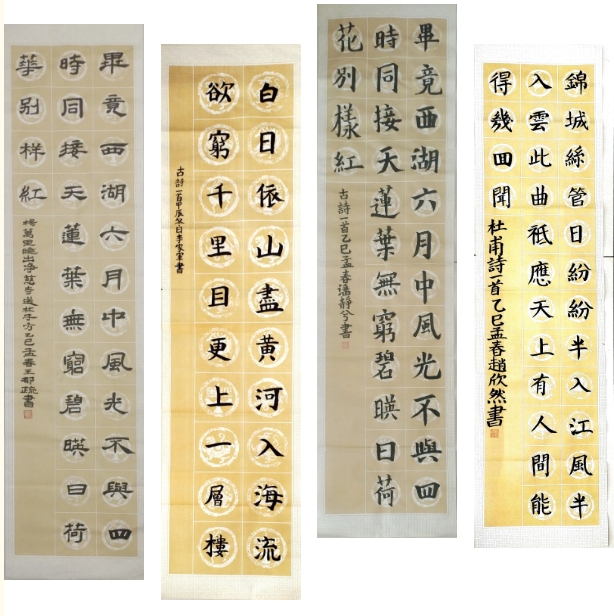 畢竟西湖六月中風光不與四
時同接天蓮葉無窮碧暎日荷
華别样紅
楊萬里曉出净慈寺送林子方乙巳孟春王郁疏書
白日依山盡黄河入海流
欲窮千里目更上一層樓
古詩一首甲辰冬日李書
畢竟西湖六月中風光不與四
時同接天蓮葉無窮碧暎日荷
花别樣紅
古詩一首乙巳孟春潘靜兮書
錦城絲管日紛紛半入江風半
入雲此曲祗應天上有人間能
得幾回聞
杜甫詩一首乙巳孟春趙欣然書